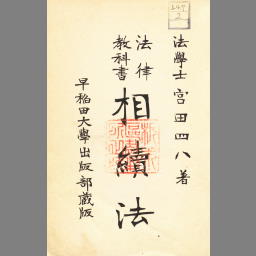 法學士宮田四八著
法律
教科書
相續法
早稻田大學出版部藏版